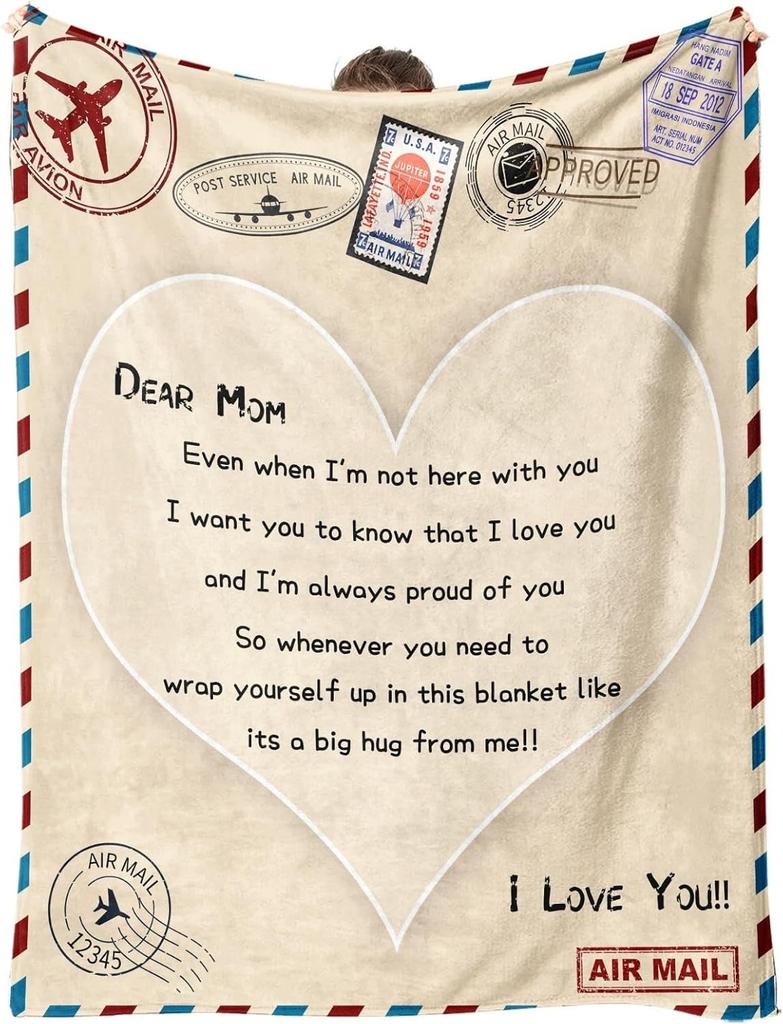 AIR MAIL
PAR AVION
POST SERVICE AIR MAIL
U.S.A.
JUPITER
LAFAYETTE, IND.
1859 ★ 1959
7¢
7¢
AIR MAIL
AIR MAIL
12345
APPROVED
HANG NADIM
GATE A
KEDATANGAN ARRIVAL
18 SEP 2012
IMIGRASI INDONESIA
ART. SERIAL NUM
ACT NO. 012345
DEAR MOM
Even when I'm not here with you
I want you to know that I love you
and I'm always proud of you
So whenever you need to
wrap yourself up in this blanket like
its a big hug from me!!
I LOVE YOU!!
AIR MAIL
12345
AIR MAIL